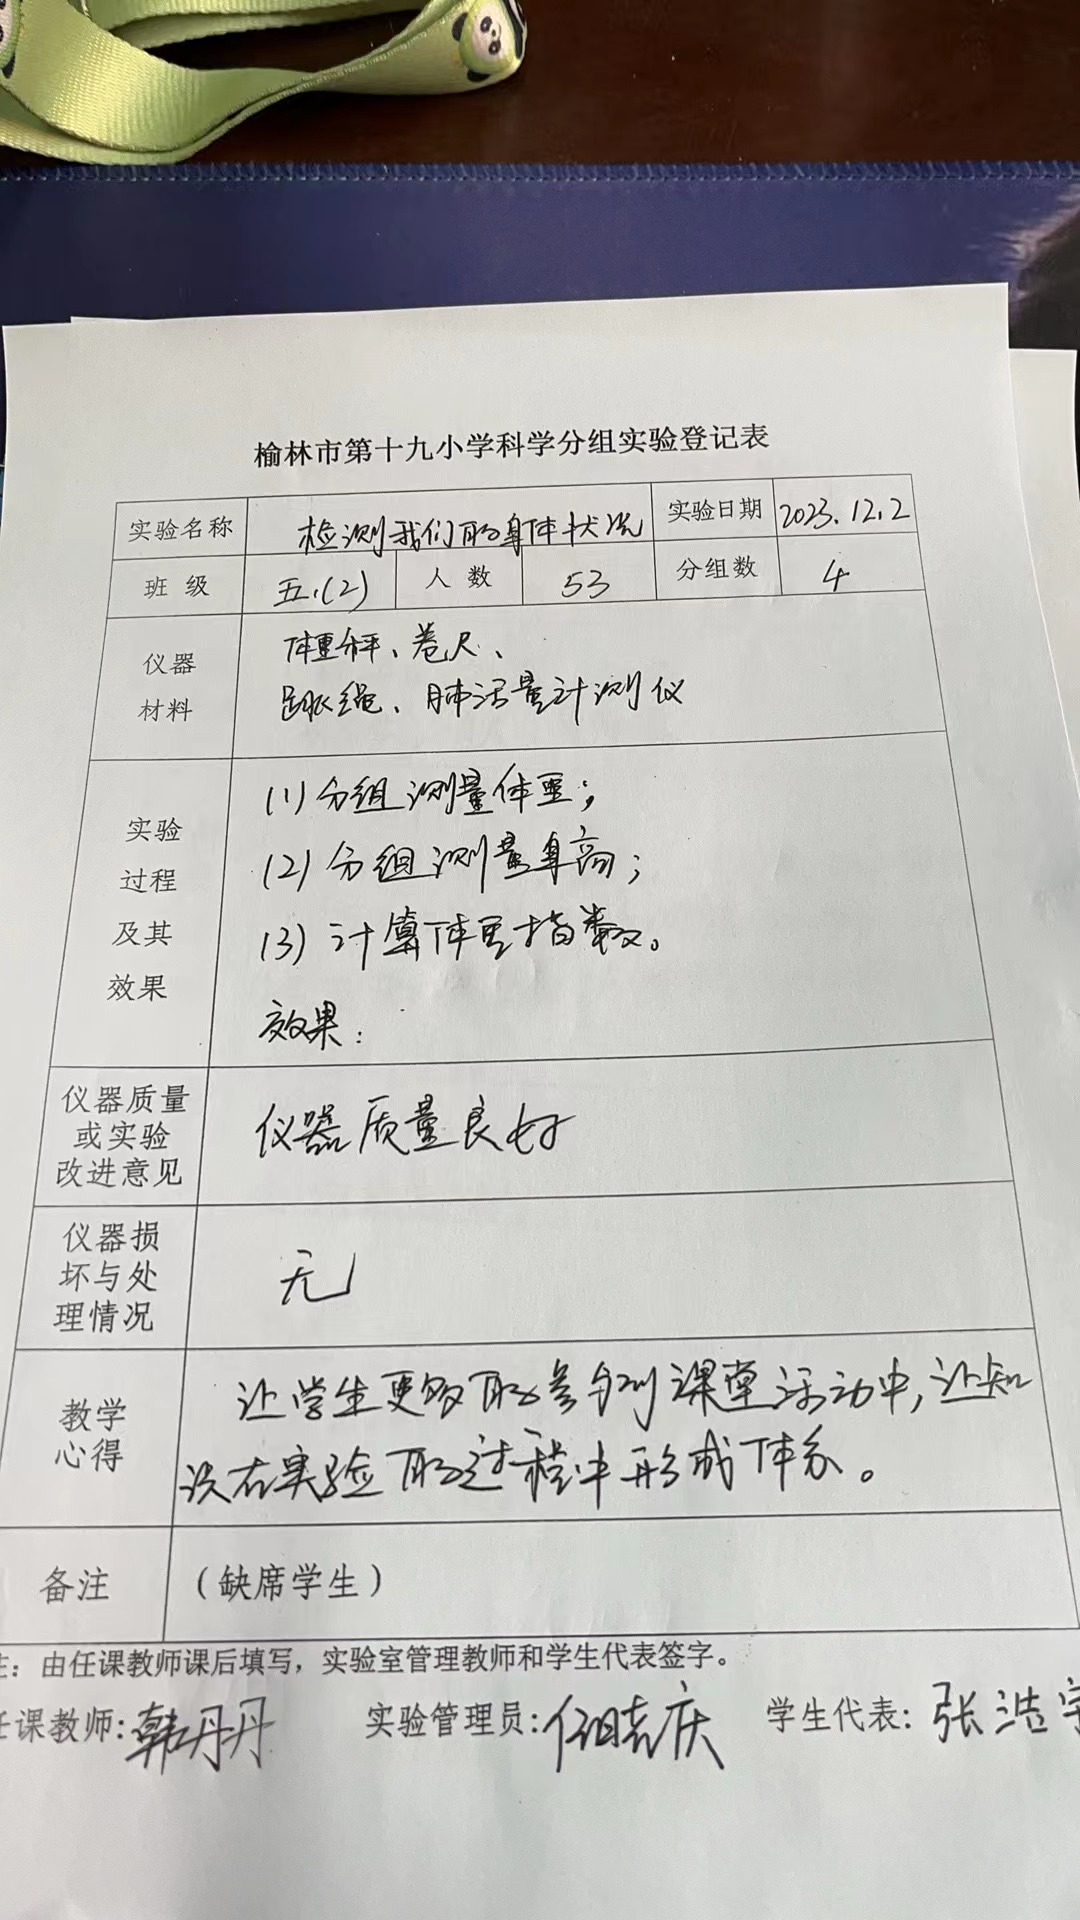 榆林市第十九小学科学分组实验登记表
实验名称 检测我们的身体状况 实验日期 2023.12.2
班 级 五.(2) 人 数 53 分组数 4
仪器
材料
体重秤、卷尺、
跳绳、肺活量计测仪
实验
过程
及其
效果
(1)分组测量体重;
(2)分组测量身高;
(3)计算体重指数。
效果:
仪器质量
或实验
改进意见
仪器质量良好
仪器损
坏与处
理情况
无
教学
心得
让学生更多的参与到课堂活动中,让知
识在实验的过程中形成体系。
备注 (缺席学生)
注:由任课教师课后填写,实验室管理教师和学生代表签字。
任课教师:韩丹丹 实验管理员:任晓庆 学生代表:张浩宇